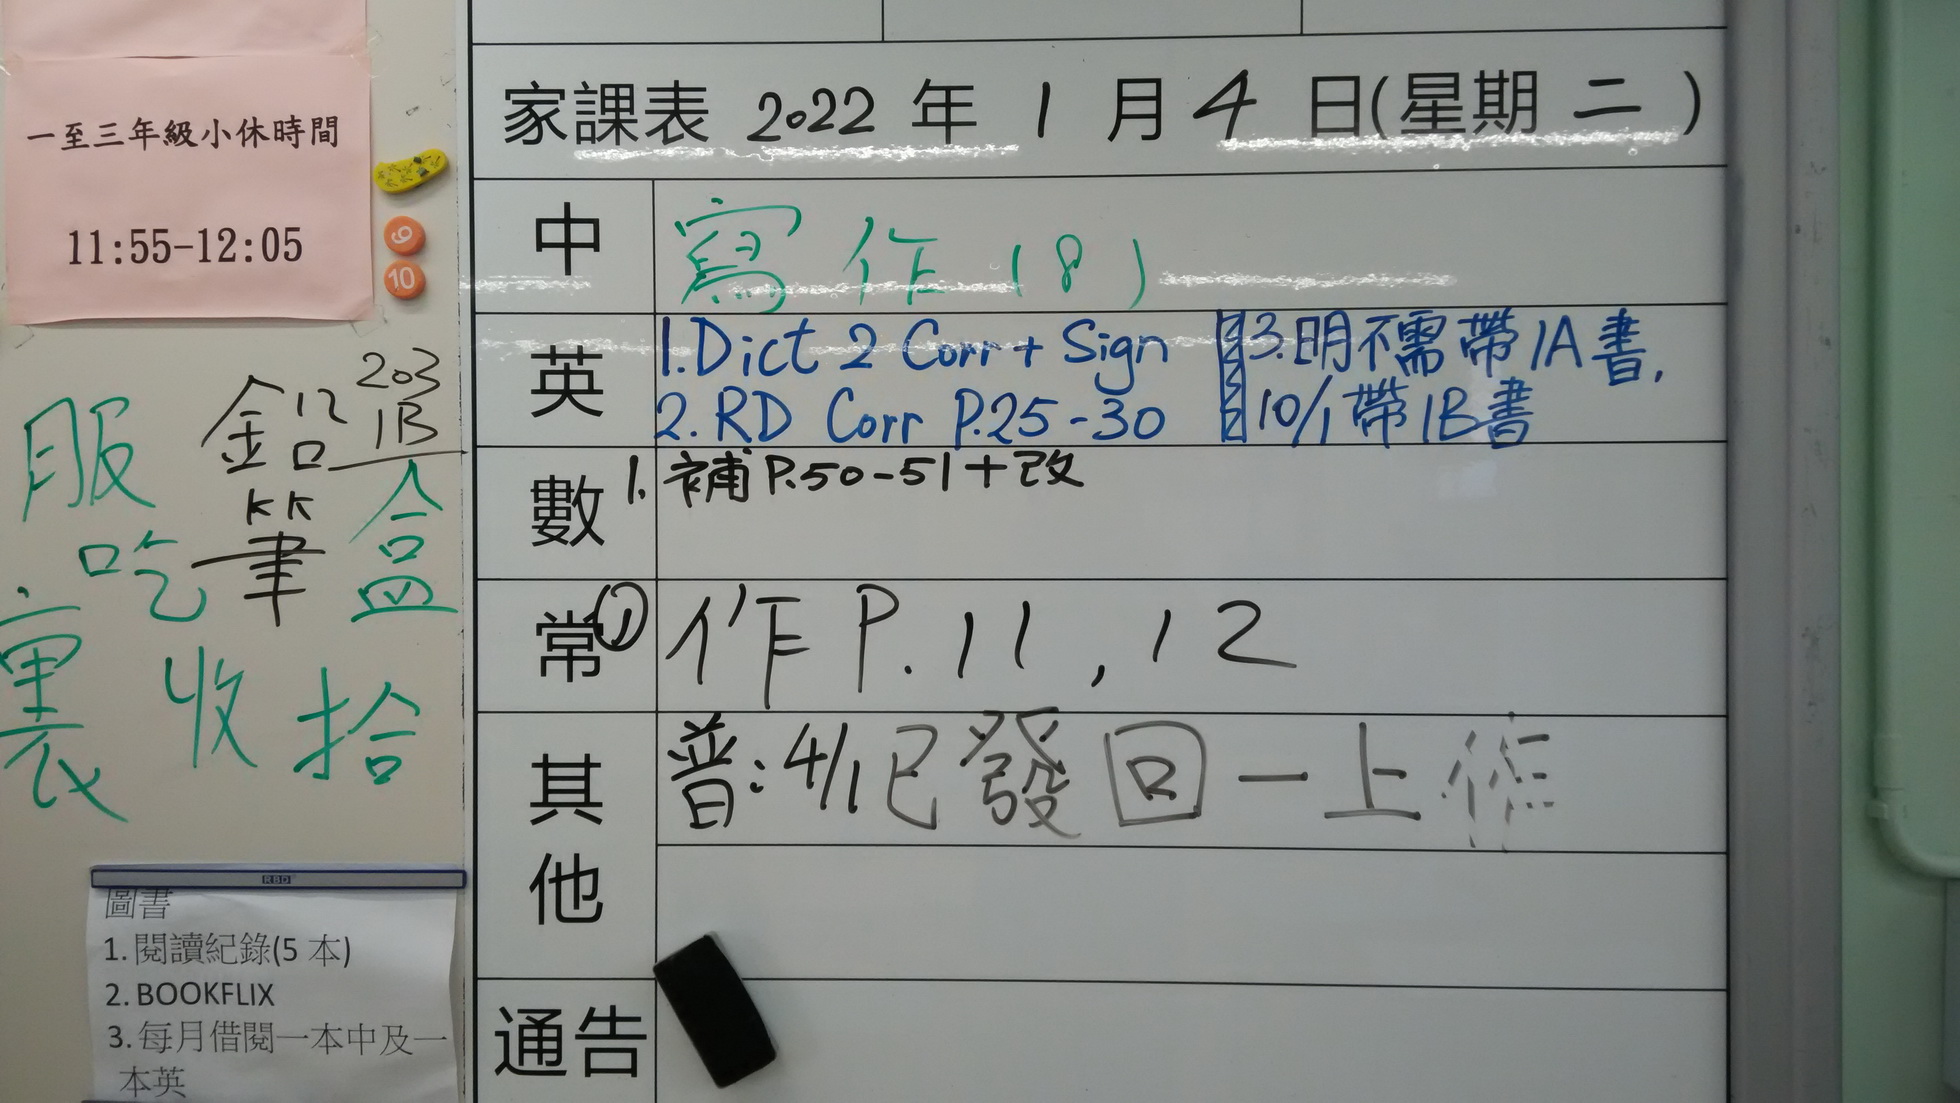 一至三年級小休時間
11:55-12:05
9
10
203
1B
鉛筆
盒
服
吃
裏
收拾
RBD
圖書
1. 閱讀紀錄(5 本)
2. BOOKFLIX
3. 每月借閱一本中及一
本英
家課表 2022 年 1 月 4 日(星期 二 )
中 寫作(8)
英 1. Dict 2 Corr + Sign
2. RD Corr P.25-30
3. 明不需帶1A書,
10/1帶1B書
數 1. 補P.50-51+改
常 ① 作 P. 11 , 12
其他 普: 4/1已發回一上作
通告